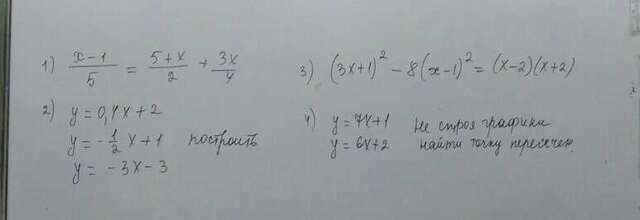 1) (x-1)/5 = (5+x)/2 + 3x/4
2) y = 0,4x + 2
y = -1/2 x + 1 построить
y = -3x - 3
3) (3x+1)² - 8(x-1)² = (x-2)(x+2)
4) y = 7x+1 Не строя графики
y = 6x+2 найти точку пересечен.